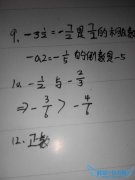 9. -3½ = -7/2 是 7/2 的相反数
-0.2 = -1/5 的倒数是-5
10. -1/2 与 -2/3
⇒ -3/6 > -4/6
12. 正数